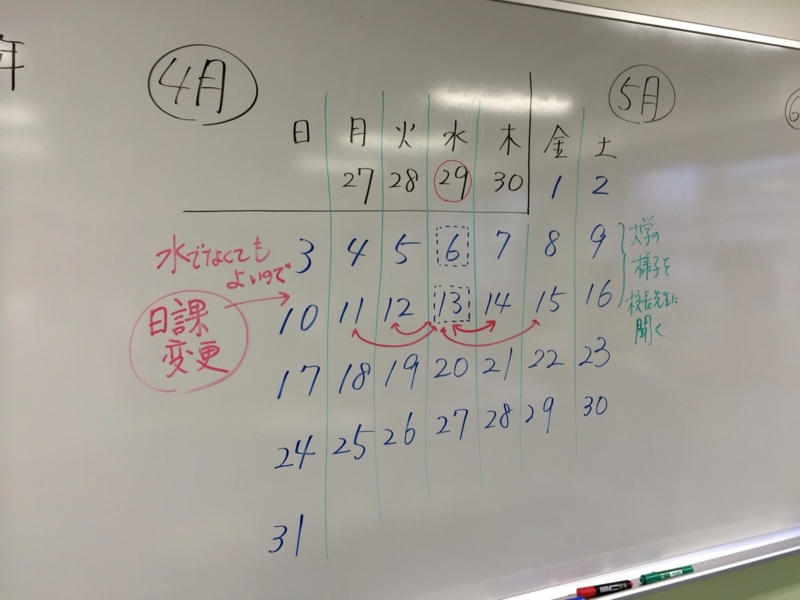 年
4月
5月
6
日 月 火 水 木 金 土
27 28 29 30 1 2
3 4 5 6 7 8 9
10 11 12 13 14 15 16
17 18 19 20 21 22 23
24 25 26 27 28 29 30
31
水でなくても
よいので
日課
変更
大学の
様子を
校長先生に
聞く